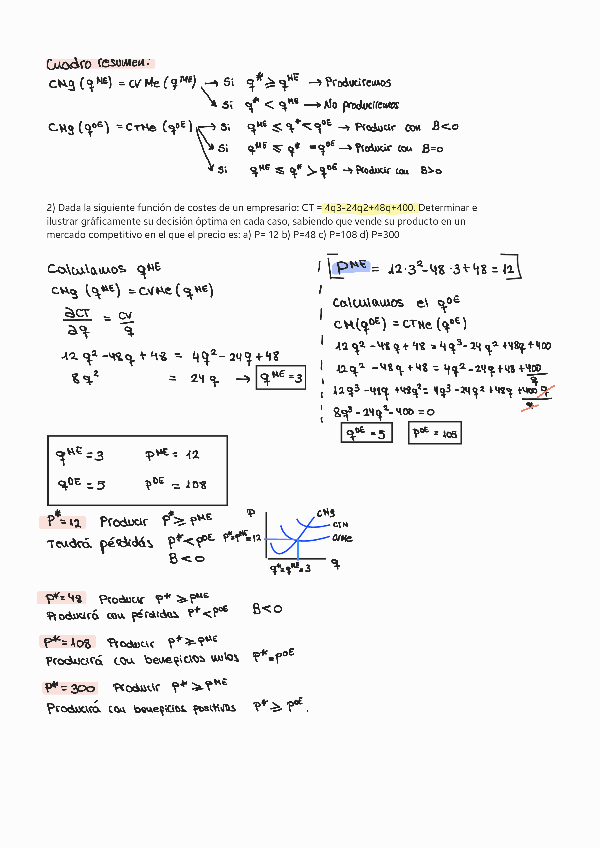 Cuadro resumen:
CMg (q^ME) = CVMe (q^ME) → Si q* ≥ q^ME → Produciremos
↘ Si q* < q^ME → No produciremos
CMg (q^OE) = CTMe (q^OE) → Si q^ME ≤ q* < q^OE → Producir con B<0
↘ Si q^ME ≤ q* = q^OE → Producir con B=0
↘ Si q^ME ≤ q* > q^OE → Producir con B>0
2) Dada la siguiente función de costes de un empresario: CT = 4q3-24q2+48q+400. Determinar e
ilustrar gráficamente su decisión óptima en cada caso, sabiendo que vende su producto en un
mercado competitivo en el que el precio es: a) P= 12 b) P=48 c) P=108 d) P=300
Calculamos q^ME
CMg (q^ME) = CVMe (q^ME)
∂CT/∂q = CV/q
12q² - 48q + 48 = 4q² - 24q + 48
8q² = 24q → q^ME = 3
P^ME = 12·3² - 48·3 + 48 = 12
Calculamos el q^OE
CM(q^OE) = CTMe (q^OE)
12q² - 48q + 48 = 4q³ - 24q² + 48q + 400
12q² - 48q + 48 = 4q² - 24q + 48 + 400/q
12q³ - 48q + 48q² = 4q³ - 24q² + 48q + 400q/q
8q³ - 24q² - 400 = 0
q^OE = 5 P^OE = 108
q^ME = 3 P^ME = 12
q^OE = 5 P^OE = 108
P* = 12 Producir P* ≥ P^ME
Tendrá pérdidas P* < P^OE
B<0
P
CMg
CTM
CVMe
P*=P^ME=12
q*=q^ME=3 q
P* = 48 Producir P* ≥ P^ME
Producirá con pérdidas P* < P^OE B<0
P* = 108 Producir P* ≥ P^ME
Producirá con beneficios nulos P* = P^OE
P* = 300 Producir P* ≥ P^ME
Producirá con beneficios positivos P* ≥ P^OE.